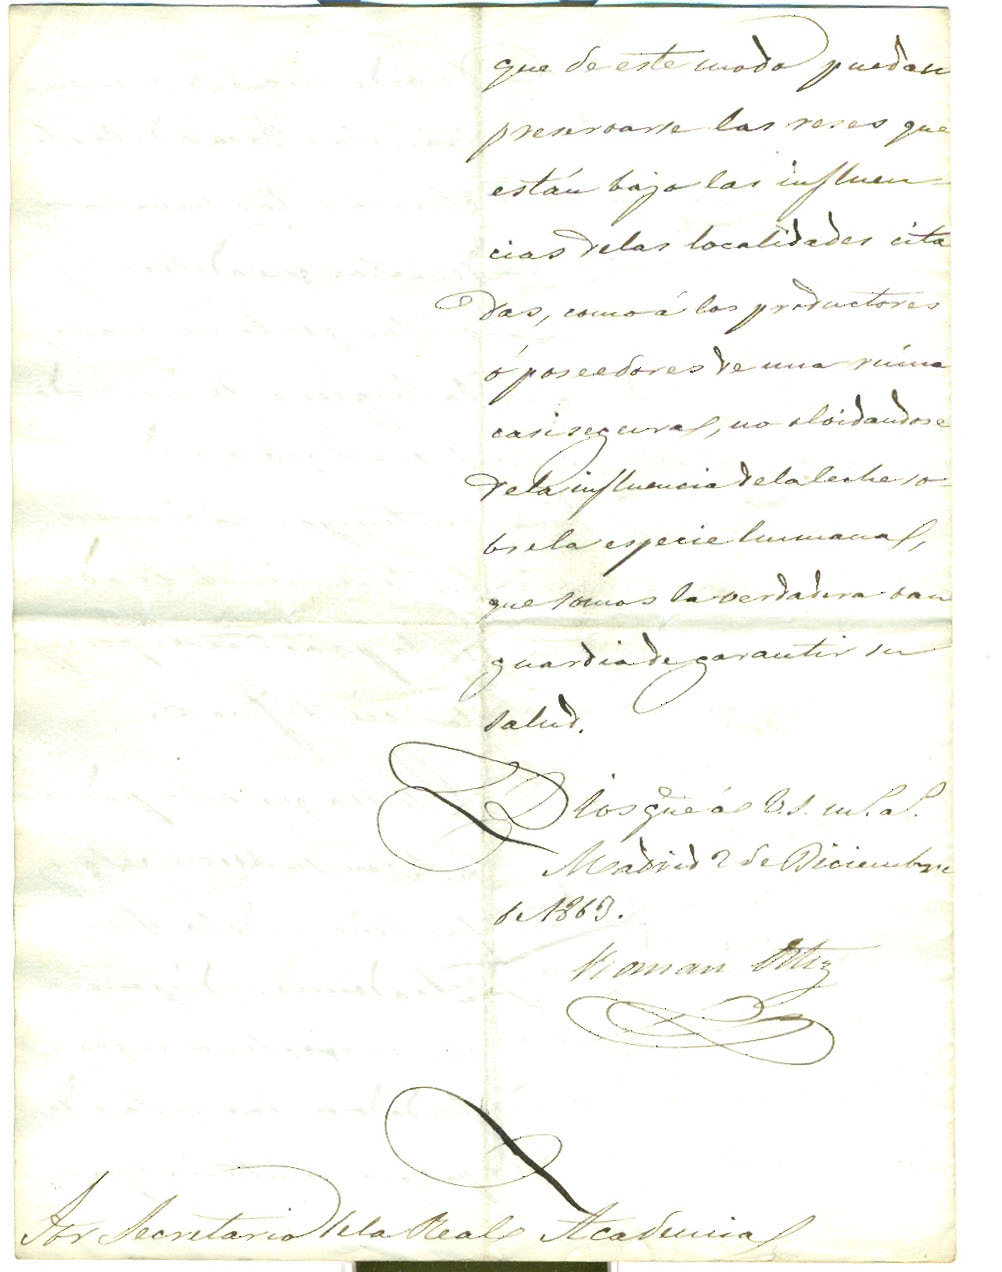 que de este modo puedan
preservarse las reses que
están bajo las influen-
cias de las localidades cita
das, como á los productores
ó poseedores de una ruina
casi segura, no olvidandose
de la influencia de la leche so-
bre la especie humana,
que somos la verdadera van
guardia de garantir su
salud.
Dios gue á V.S. m.s a.s
Madrid 2 de Diciembre
de 1863.
Roman Ortiz
Sor Secretario de la Real Academia